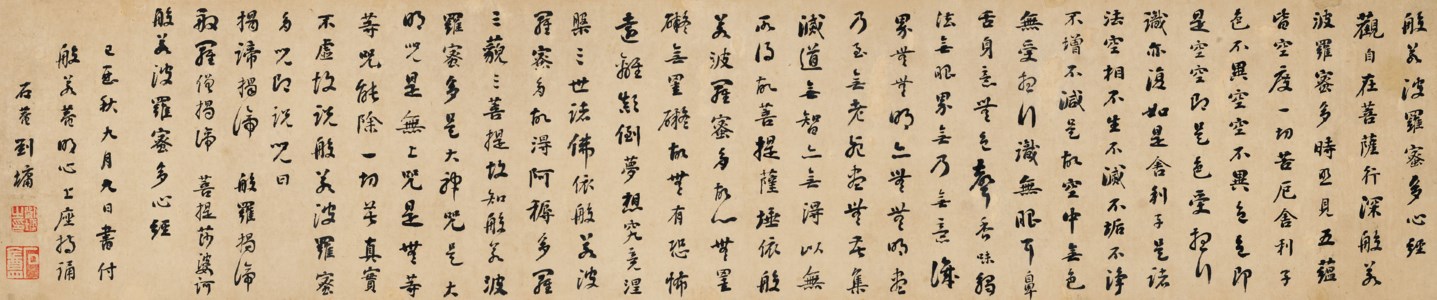 般若波羅蜜多心經
觀自在菩薩行深般若
波羅蜜多時照見五蘊
皆空度一切苦厄舍利子
色不異空空不異色色即
是空空即是色受想行
識亦復如是舍利子是諸
法空相不生不滅不垢不淨
不增不減是故空中無色
無受想行識無眼耳鼻
舌身意無色聲香味觸
法無眼界無乃無意識
界無無明亦無無明盡
乃至無老死盡無苦集
滅道無智亦無得以無
所得故菩提薩埵依般
若波羅蜜多故心無罣
礙無罣礙故無有恐怖
遠離顛倒夢想究竟涅
槃三世諸佛依般若波
羅蜜多故得阿耨多羅
三藐三菩提故知般若波
羅蜜多是大神咒是大
明咒是無上咒是無等
等咒能除一切苦真實
不虛故說般若波羅蜜
多咒即說咒曰
揭諦揭諦 般羅揭諦
般羅僧揭諦 菩提莎婆訶
般若波羅蜜多心經
己酉秋九月九日書付
般若菴明心上座持誦
石菴劉墉